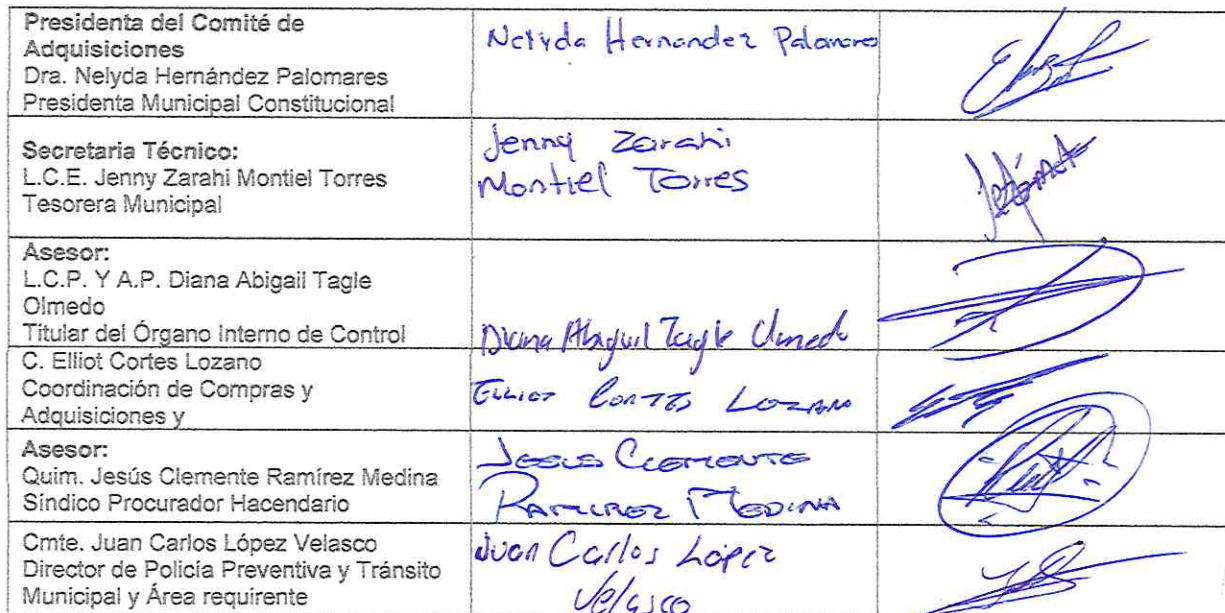 Presidenta del Comité de
Adquisiciones
Dra. Nelyda Hernández Palomares
Presidenta Municipal Constitucional
Nelyda Hernandez Palomares
Secretaria Técnico:
L.C.E. Jenny Zarahi Montiel Torres
Tesorera Municipal
Jenny Zarahi
Montiel Torres
Asesor:
L.C.P. Y A.P. Diana Abigail Tagle
Olmedo
Titular del Órgano Interno de Control
Diana Abigail Tagle Olmedo
C. Elliot Cortes Lozano
Coordinación de Compras y
Adquisiciones y
Elliot Cortes Lozano
Asesor:
Quim. Jesús Clemente Ramírez Medina
Síndico Procurador Hacendario
Jesus Clemente
Ramirez Medina
Cmte. Juan Carlos López Velasco
Director de Policía Preventiva y Tránsito
Municipal y Área requirente
Juan Carlos López
Velasco